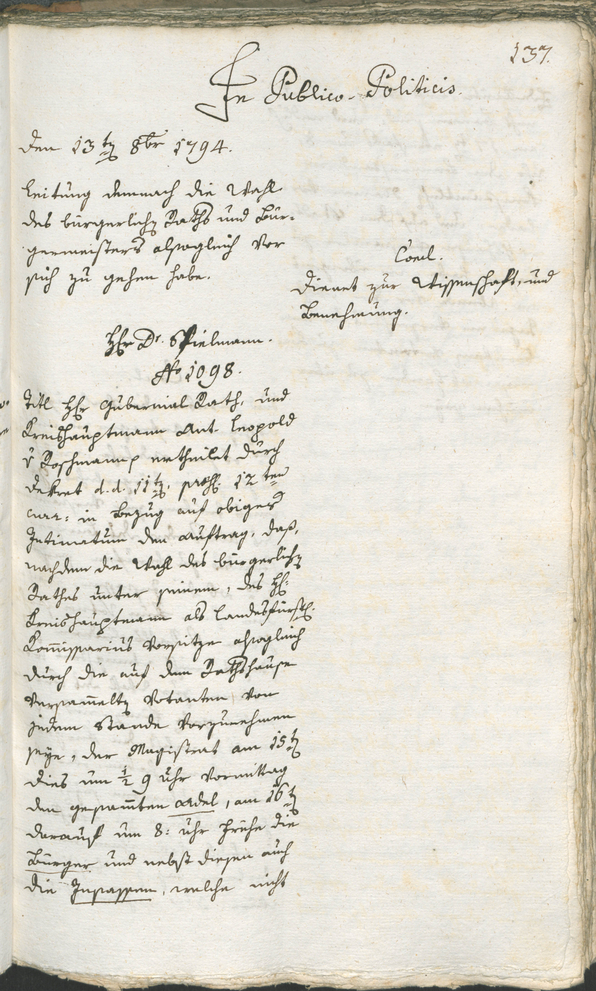 137.
In Publico-Politicis
Den 13ten 8br 1794.
leitung demnach die Wahl
des bürgerlichen Raths und Bür-
germeisters alsogleich vor
sich zu gehen habe.
Concl.
Dienet zur Wissenschaft, und
Benehmung.
Hr Dr. Spielmann.
No 1098.
Titl Hr Gubernial Rath, und
Kreishauptmann Ant. Leopold
v Roschmann ertheilet durch
Dekret d.d. 11ten, praes. 12ten
curr: in Bezug auf obiges
Intimatum den Auftrag, daß,
nachdem die Wahl des bürgerlichen
Rathes unter seinem, des H:
Kreishauptmann als landesfürstl.
Kommissarius Vorsitze alsogleich
durch die auf dem Rathhause
versammelten Votanten von
jedem Stande vorzunehmen
seye, der Magistrat am 15ten
dies um ½ 9 Uhr Vormittag
den gesamten Adel, am 16ten
darauf um 8: Uhr Frühe die
Bürger und nebst diesen auch
die Insassen, welche nicht